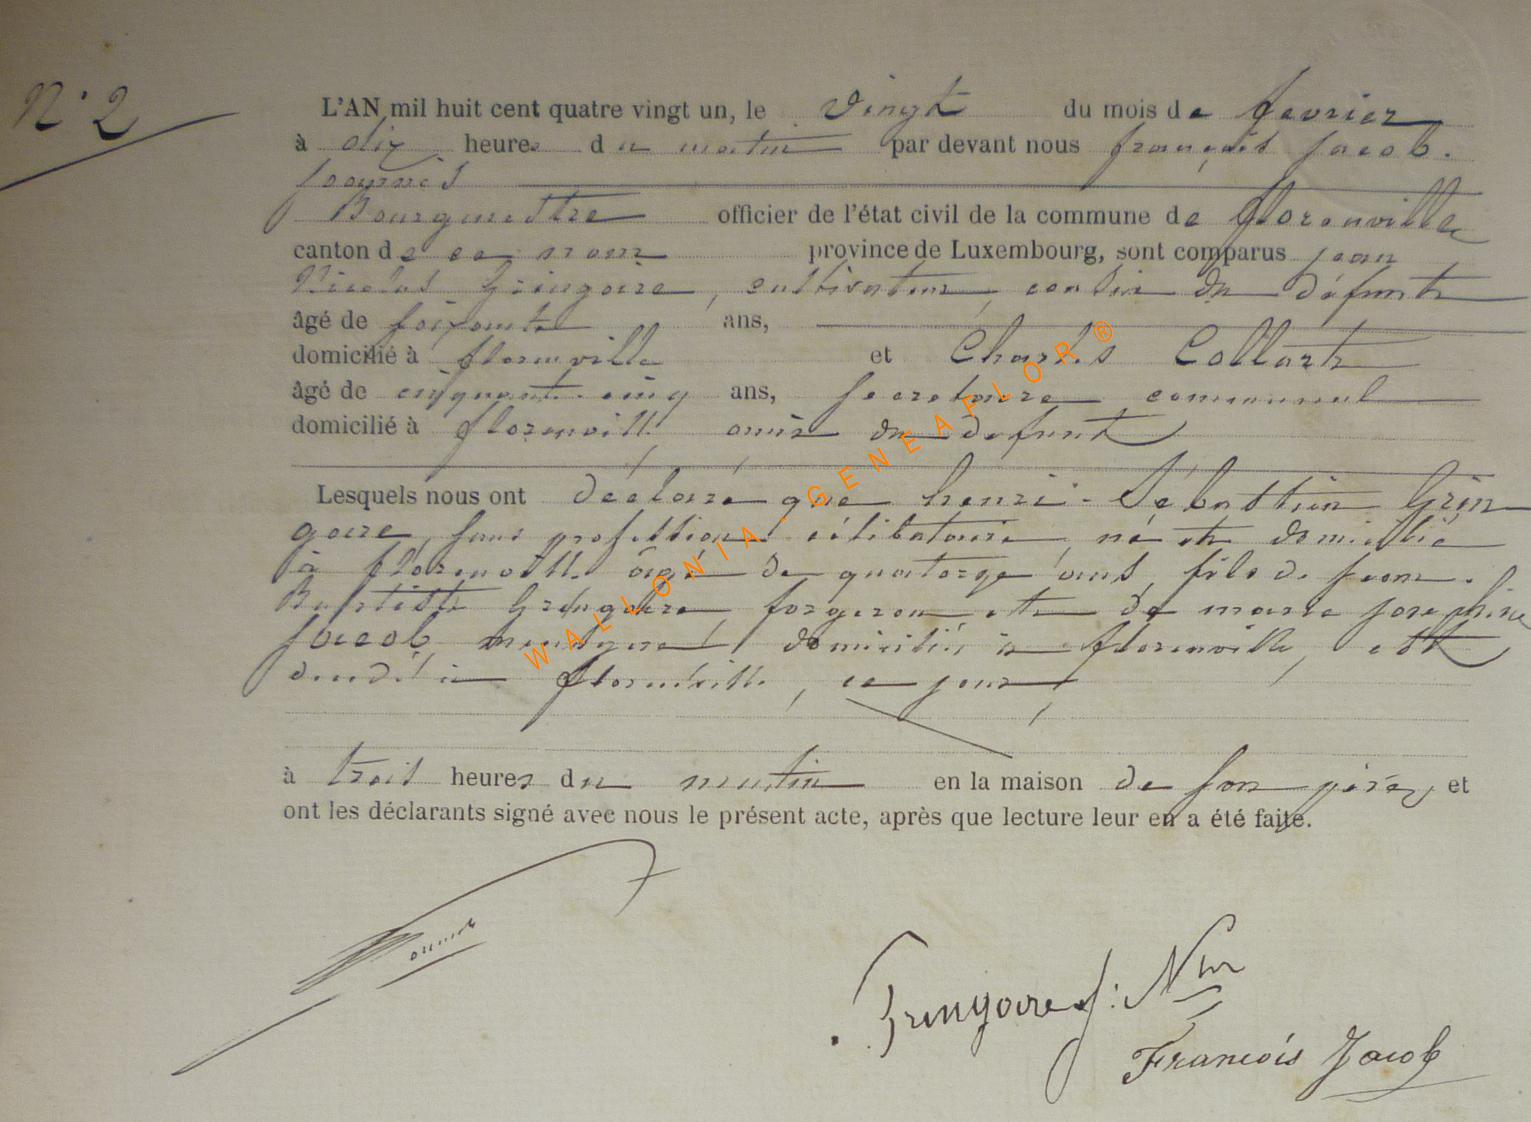 N° 2
L'AN mil huit cent quatre vingt un, le vingt du mois de fevrier
à dix heures du matin par devant nous françois Jacob.
Bourgmestre officier de l'état civil de la commune de florenville
canton de ce nom province de Luxembourg, sont comparus jean
Nicolas Gringoire, cultivateur, cousin du défunt
âgé de soixante ans,
domicilié à florenville et Charles Collart
âgé de cinquante-cinq ans, secretaire communal
domicilié à florenville, amis du defunt
Lesquels nous ont déclaré que henri-Sébastien Grin
goire, sans profession célibataire, né et domicilié
à florenville âgé de quatorze ans, fils de jean-
Baptiste Gringoire, forgeron, et de marie josephine
Jacob, menagere, domiciliés à florenville, est
décédé à florenville, ce jour,
à trois heures du matin en la maison de son père, et
ont les déclarants signé avec nous le présent acte, après que lecture leur en a été faite.
Gringoire J: N
François Jacob
WALLONIA-GENEAFLOR®